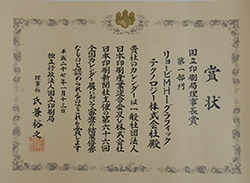 賞状
国立印刷局理事長賞
第一部門
リョービMHIグラフィック
テクノロジー株式会社殿
貴社のカレンダーは一般社団法人
日本印刷産業連合会及び株式会社
日本印刷新聞社主催の第六十六回
全国カレンダー展において審査の結果優秀
なものと認められたのでこれを賞します
平成二十七年一月十三日
独立行政法人国立印刷局
理事長
氏兼裕之